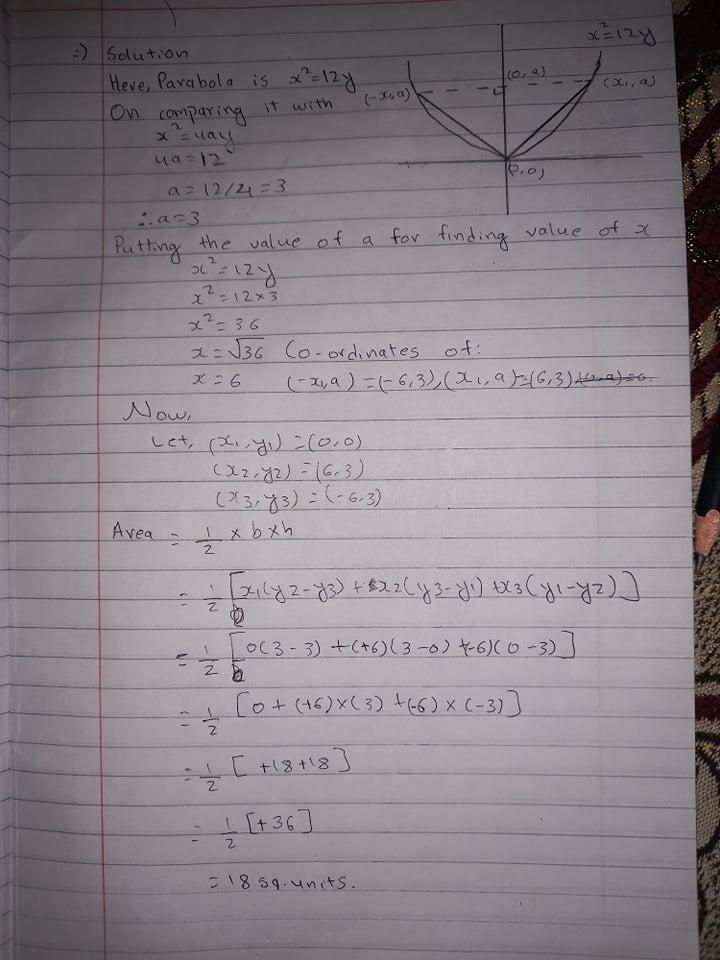 x²=12y
=) Solution
Here, Parabola is x²=12y
(0,a)
(-x₁,a)
(x₁,a)
On comparing it with
x²=4ay
4a=12
(0,0)
a=12/4=3
∴a=3
Putting the value of a for finding value of x
x²=12y
x²=12×3
x²=36
x=√36 Co-ordinates of:
x=6 (-x₁,a)=(-6,3),(x₁,a)=(6,3)
Now,
Let, (x₁,y₁)=(0,0)
(x2,y2)=(6,3)
(x3,y3)=(-6,3)
Area = 1/2 × b×h
= 1/2 [x₁(y2-y3)+x2(y3-y1)+x3(y1-y2)]
= 1/2 [0(3-3)+(+6)(3-0)+(-6)(0-3)]
= 1/2 [0+(+6)×(3)+(-6)×(-3)]
= 1/2 [+18+18]
= 1/2 [+36]
=18 sq.units.